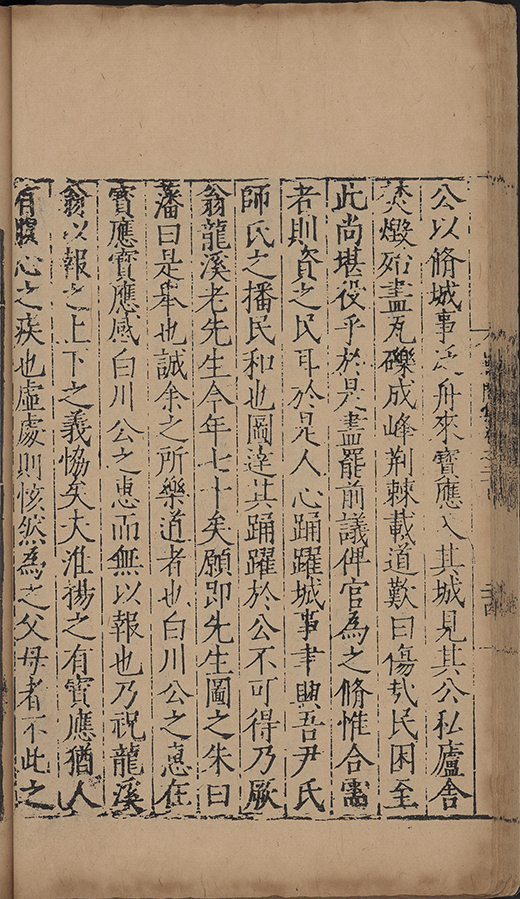 公以脩城事泛舟來寶應入其城見其公私廬舍
焚燬殆盡瓦礫成峰荆棘載道歎曰傷哉民困至
此尚堪役乎於是盡罷前議俾官為之脩惟合需
者則資之民耳於是人心踊躍城事聿興吾尹氏
師氏之播民和也圖達其踊躍於公不可得乃厥
翁龍溪老先生今年七十矣願即先生圖之朱曰
藩曰是舉也誠余之所樂道者也白川公之惠在
寶應寶應感白川公之惠而無以報也乃祝龍溪
翁以報之上下之義恊矣夫淮揚之有寶應猶人
有腹心之疾也虛處則然為之父母者不此之